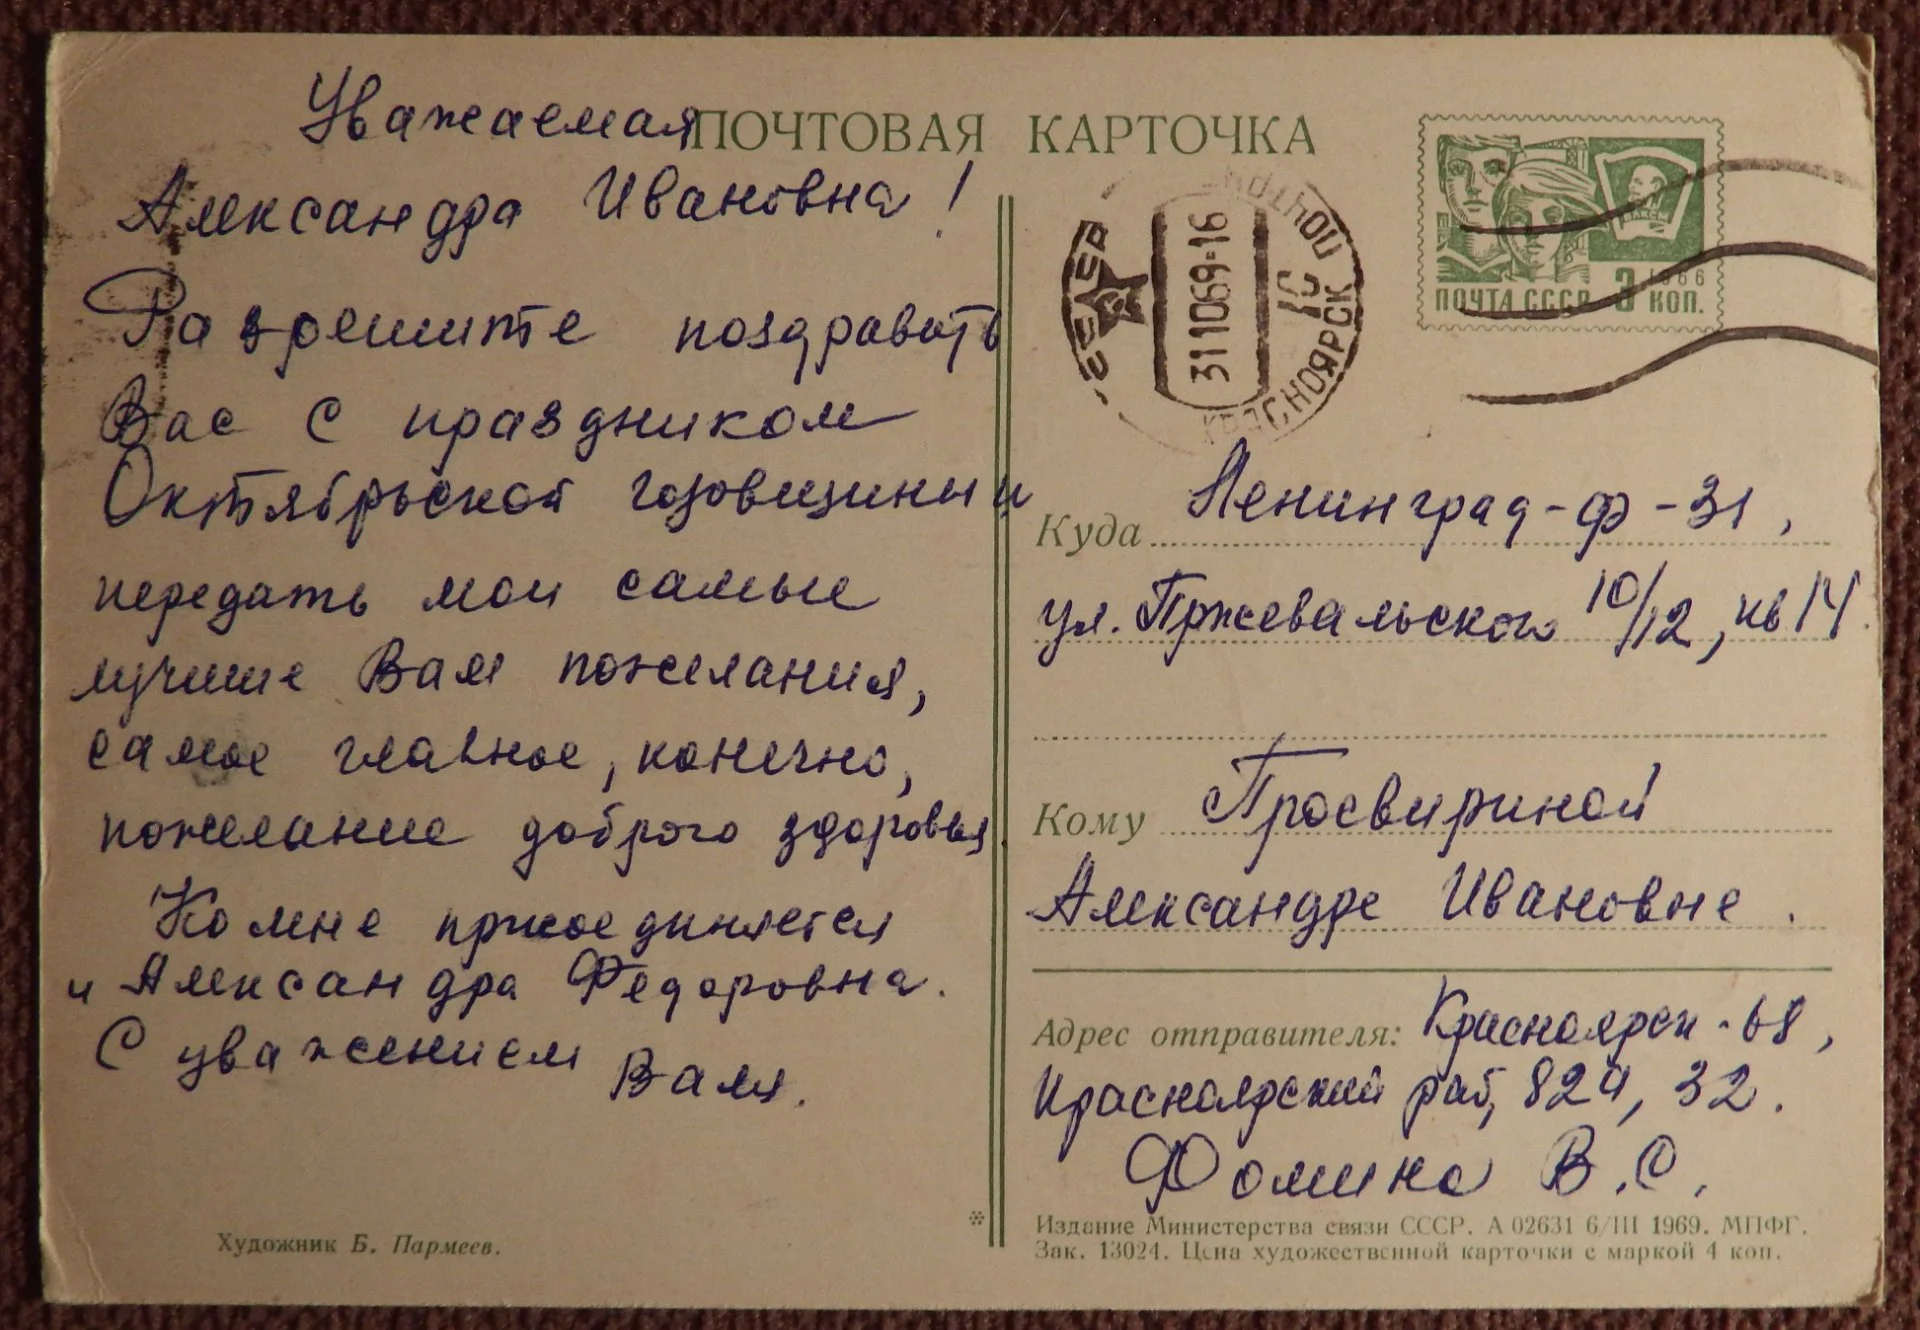 Уважаемая
Александра Ивановна!
Разрешите поздравить
Вас с праздником
Октябрьской годовщины и
передать мои самые
лучшие Вам пожелания,
самое главное, конечно,
пожелание доброго здоровья
Ко мне присоединяется
и Александра Федоровна.
С уважением Валя.
Художник Б. Пармеев.
ПОЧТОВАЯ КАРТОЧКА
СССР
311069-16
КРАСНОЯРСК
ПОЧТАМТ
ВЛКСМ
1966
ПОЧТА СССР 3 КОП.
Куда Ленинград-ф-31,
ул. Пржевальского 10/12, кв 14.
Кому Просвириной
Александре Ивановне.
Адрес отправителя: Красноярск-68,
Красноярский раб, 82 32.
Фомина В.С.
Издание Министерства связи СССР. А 02631 6/III 1969. МПФГ.
Зак. 13024. Цена художественной карточки с маркой 4 коп.